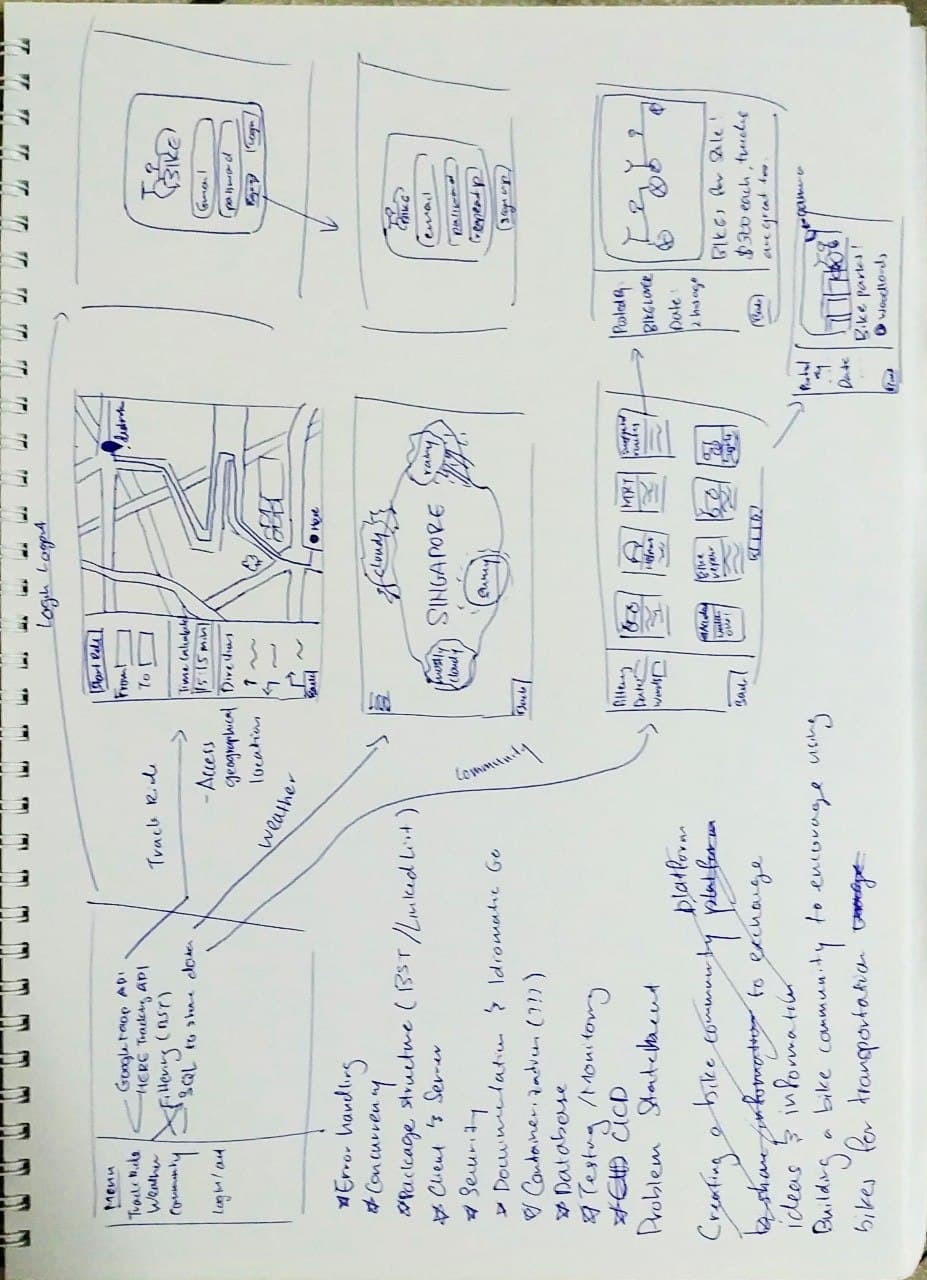 Menu
Track Ride
Weather
Community
Login/out
Google Map API
HERE Tracking API
Filtering (BST)
SQL to share data
Track Ride
- Access
geographical
location
Weather
Community
Login/Logout
Start Ride
From
To
Time Calculated
15:15 min
Direction
Back
destination
Here
BIKE
Email
password
Login
BIKE
email
password
repeat p
sign up
SINGAPORE
cloudy
rainy
sunny
mostly
cloudy
Back
Date
Back
MRT
Bike
repair
Posted by:
Bikelover
Date:
2 hrs ago
Back
Bikes for Sale!
$300 each, trades
are great too.
Posted
by
Date
Back
Bike parks!
Woodlands
Error handling
Concurrency
Package structure (BST/Linked List)
Client & Server
Security
Documentation & Idiomatic Go
Containerization (???)
Database
Testing/Monitoring
CICD
Problem Statement
Creating a bike community platform
to share information to exchange
ideas & information
Building a bike community to encourage using
bikes for transportation